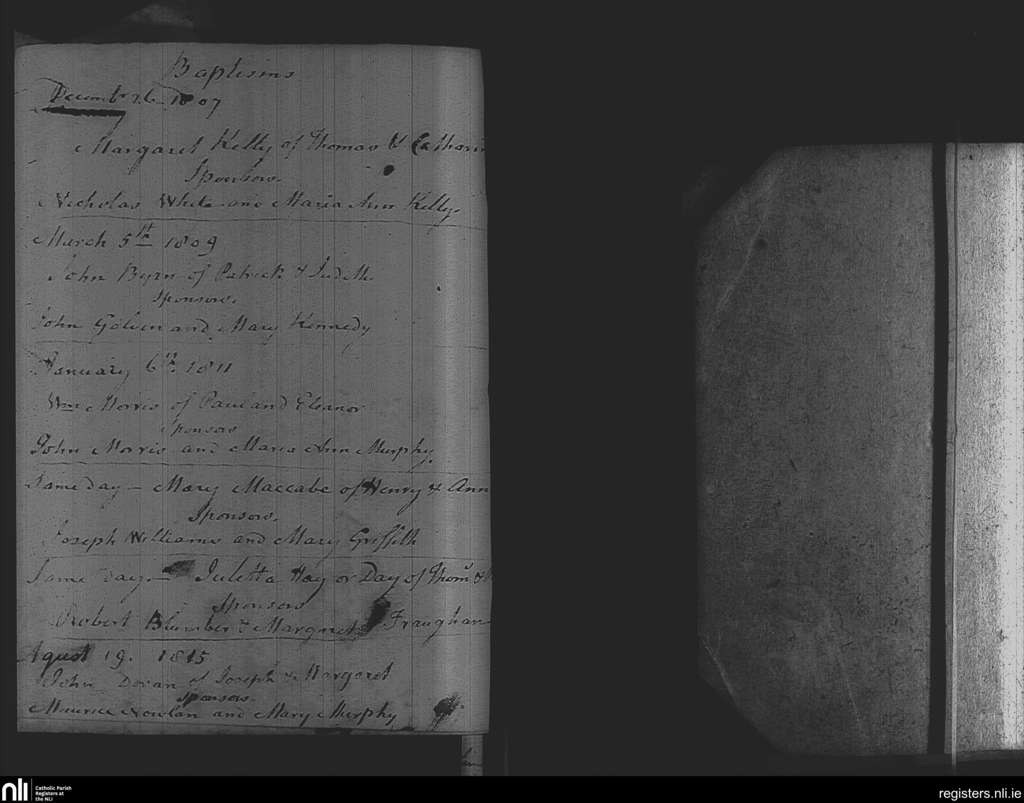 Baptisms
Decemb 26 1807
Margaret Kelly of Thomas & Catharin
Sponsors.
Nicholas White and Maria Ann Kelly.
March 5th 1809
John Byrn of Patrick & Judith
Sponsors.
John Golven and Mary Kennedy
January 6th 1811
Wm Morris of Paul and Eleanor
Sponsors
John Morris and Maria Ann Murphy.
Same day - Mary Maccabe of Henry & Ann
Sponsors.
Joseph Williams and Mary Griffith
Same Day - Juletta Hay or Day of Thoms &
Sponsors
Robert Blumber & Margret Fraughan
Agust 19. 1815
John Doran of Joseph & Margaret
Sponsors.
Maurice Nowlan and Mary Murphy
nli Catholic Parish
Registers at
the NLI
registers.nli.ie